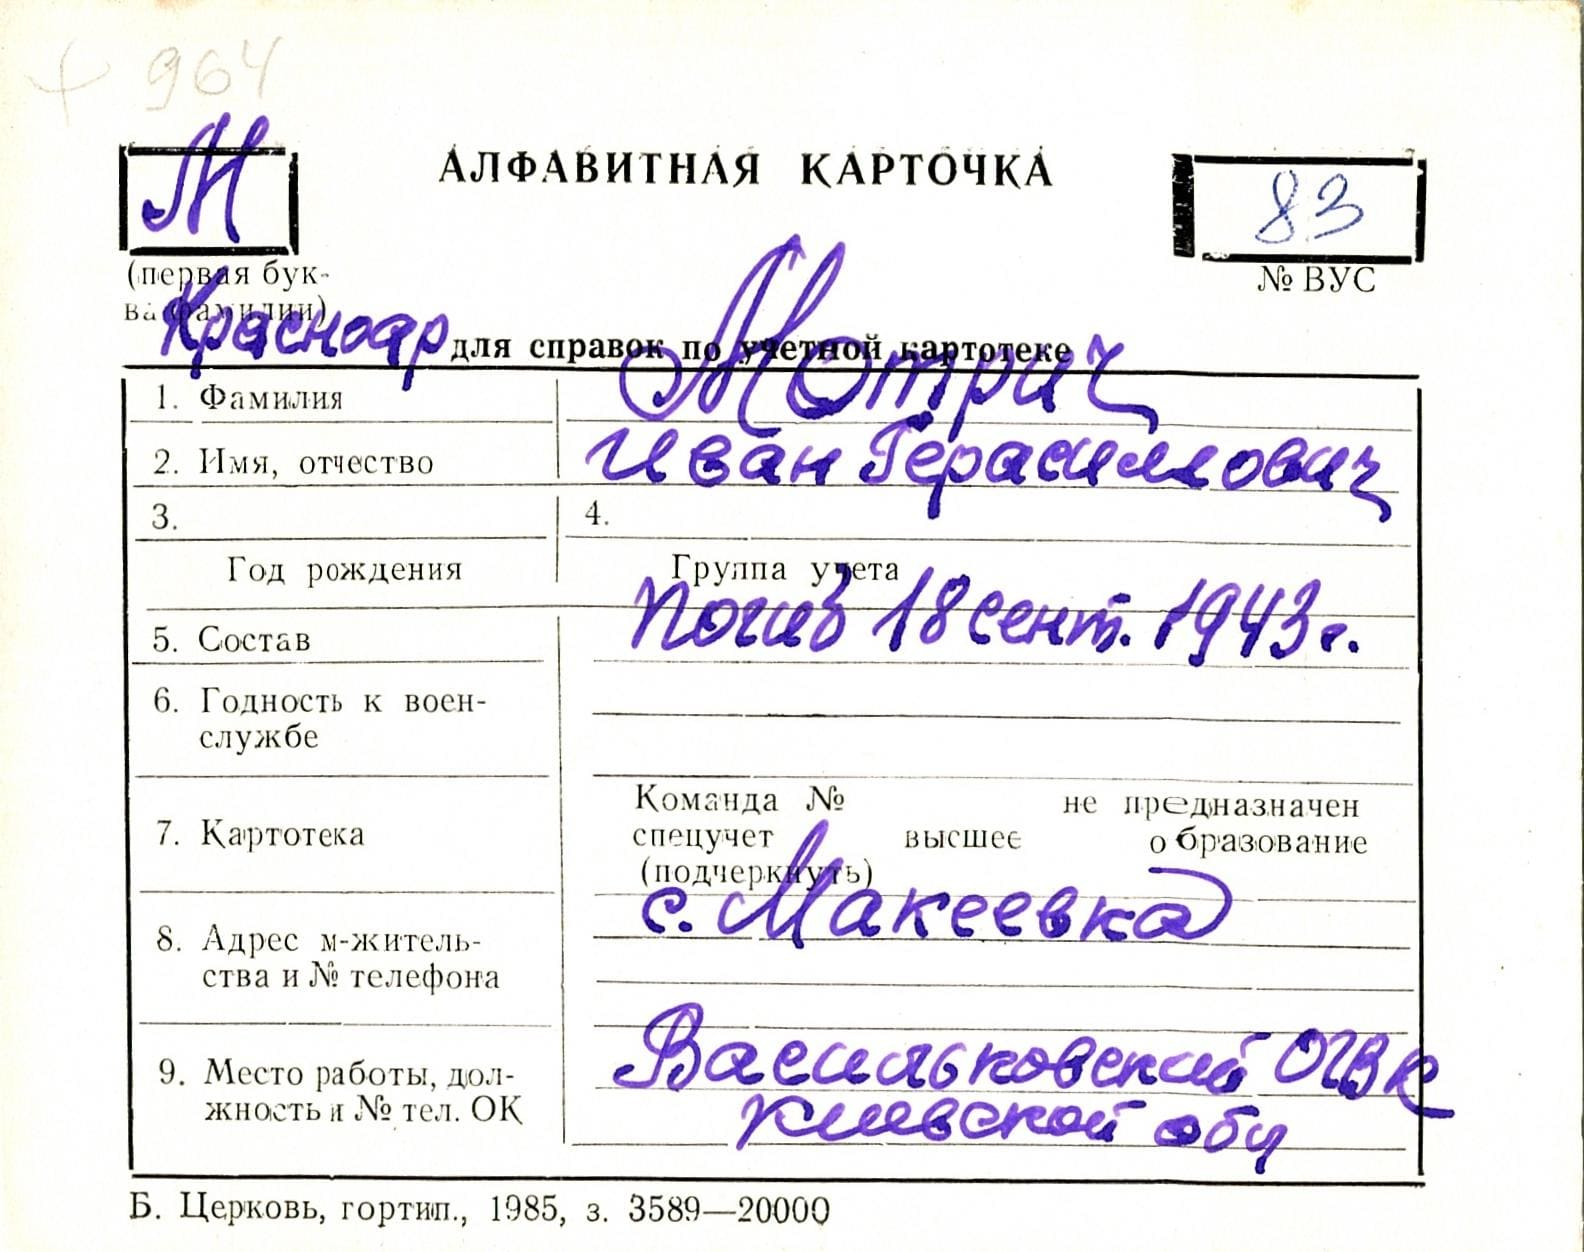 + 964
М
АЛФАВИТНАЯ КАРТОЧКА
83
(первая бук-
ва фамилии)
№ ВУС
Красноар
для справок по учетной картотеке
1. Фамилия
Мотрич
2. Имя, отчество
Иван Герасимович
3.
4.
Год рождения
Группа учета
погиб 18 сент. 1943 г.
5. Состав
6. Годность к воен-
службе
7. Картотека
Команда № не предназначен
спецучет высшее образование
(подчеркнуть)
с. Макеевка
8. Адрес м-житель-
ства и № телефона
9. Место работы, дол-
жность и № тел. ОК
Васильковский ОГВК
Киевской обл
Б. Церковь, гортип., 1985, з. 3589—20000